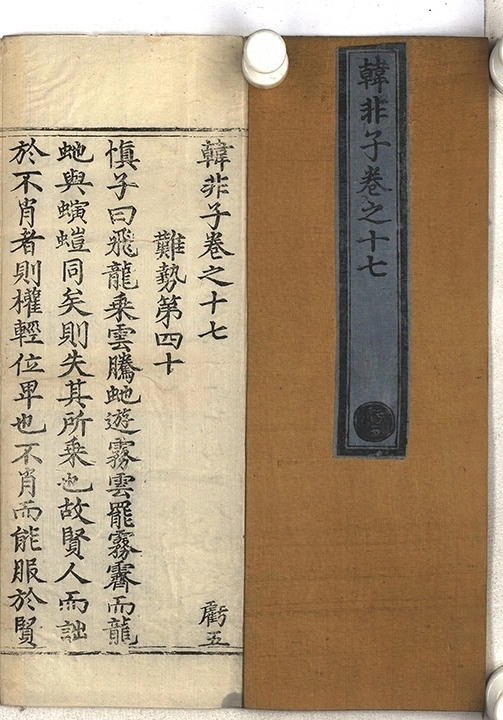 韓非子卷之十七
韓非子卷之十七
難勢第四十
慎子曰飛龍乘雲騰虵遊霧雲罷霧霽而龍
虵與螾螘同矣則失其所乘也故賢人而詘
於不肖者則權輕位卑也不肖而能服於賢
虧五